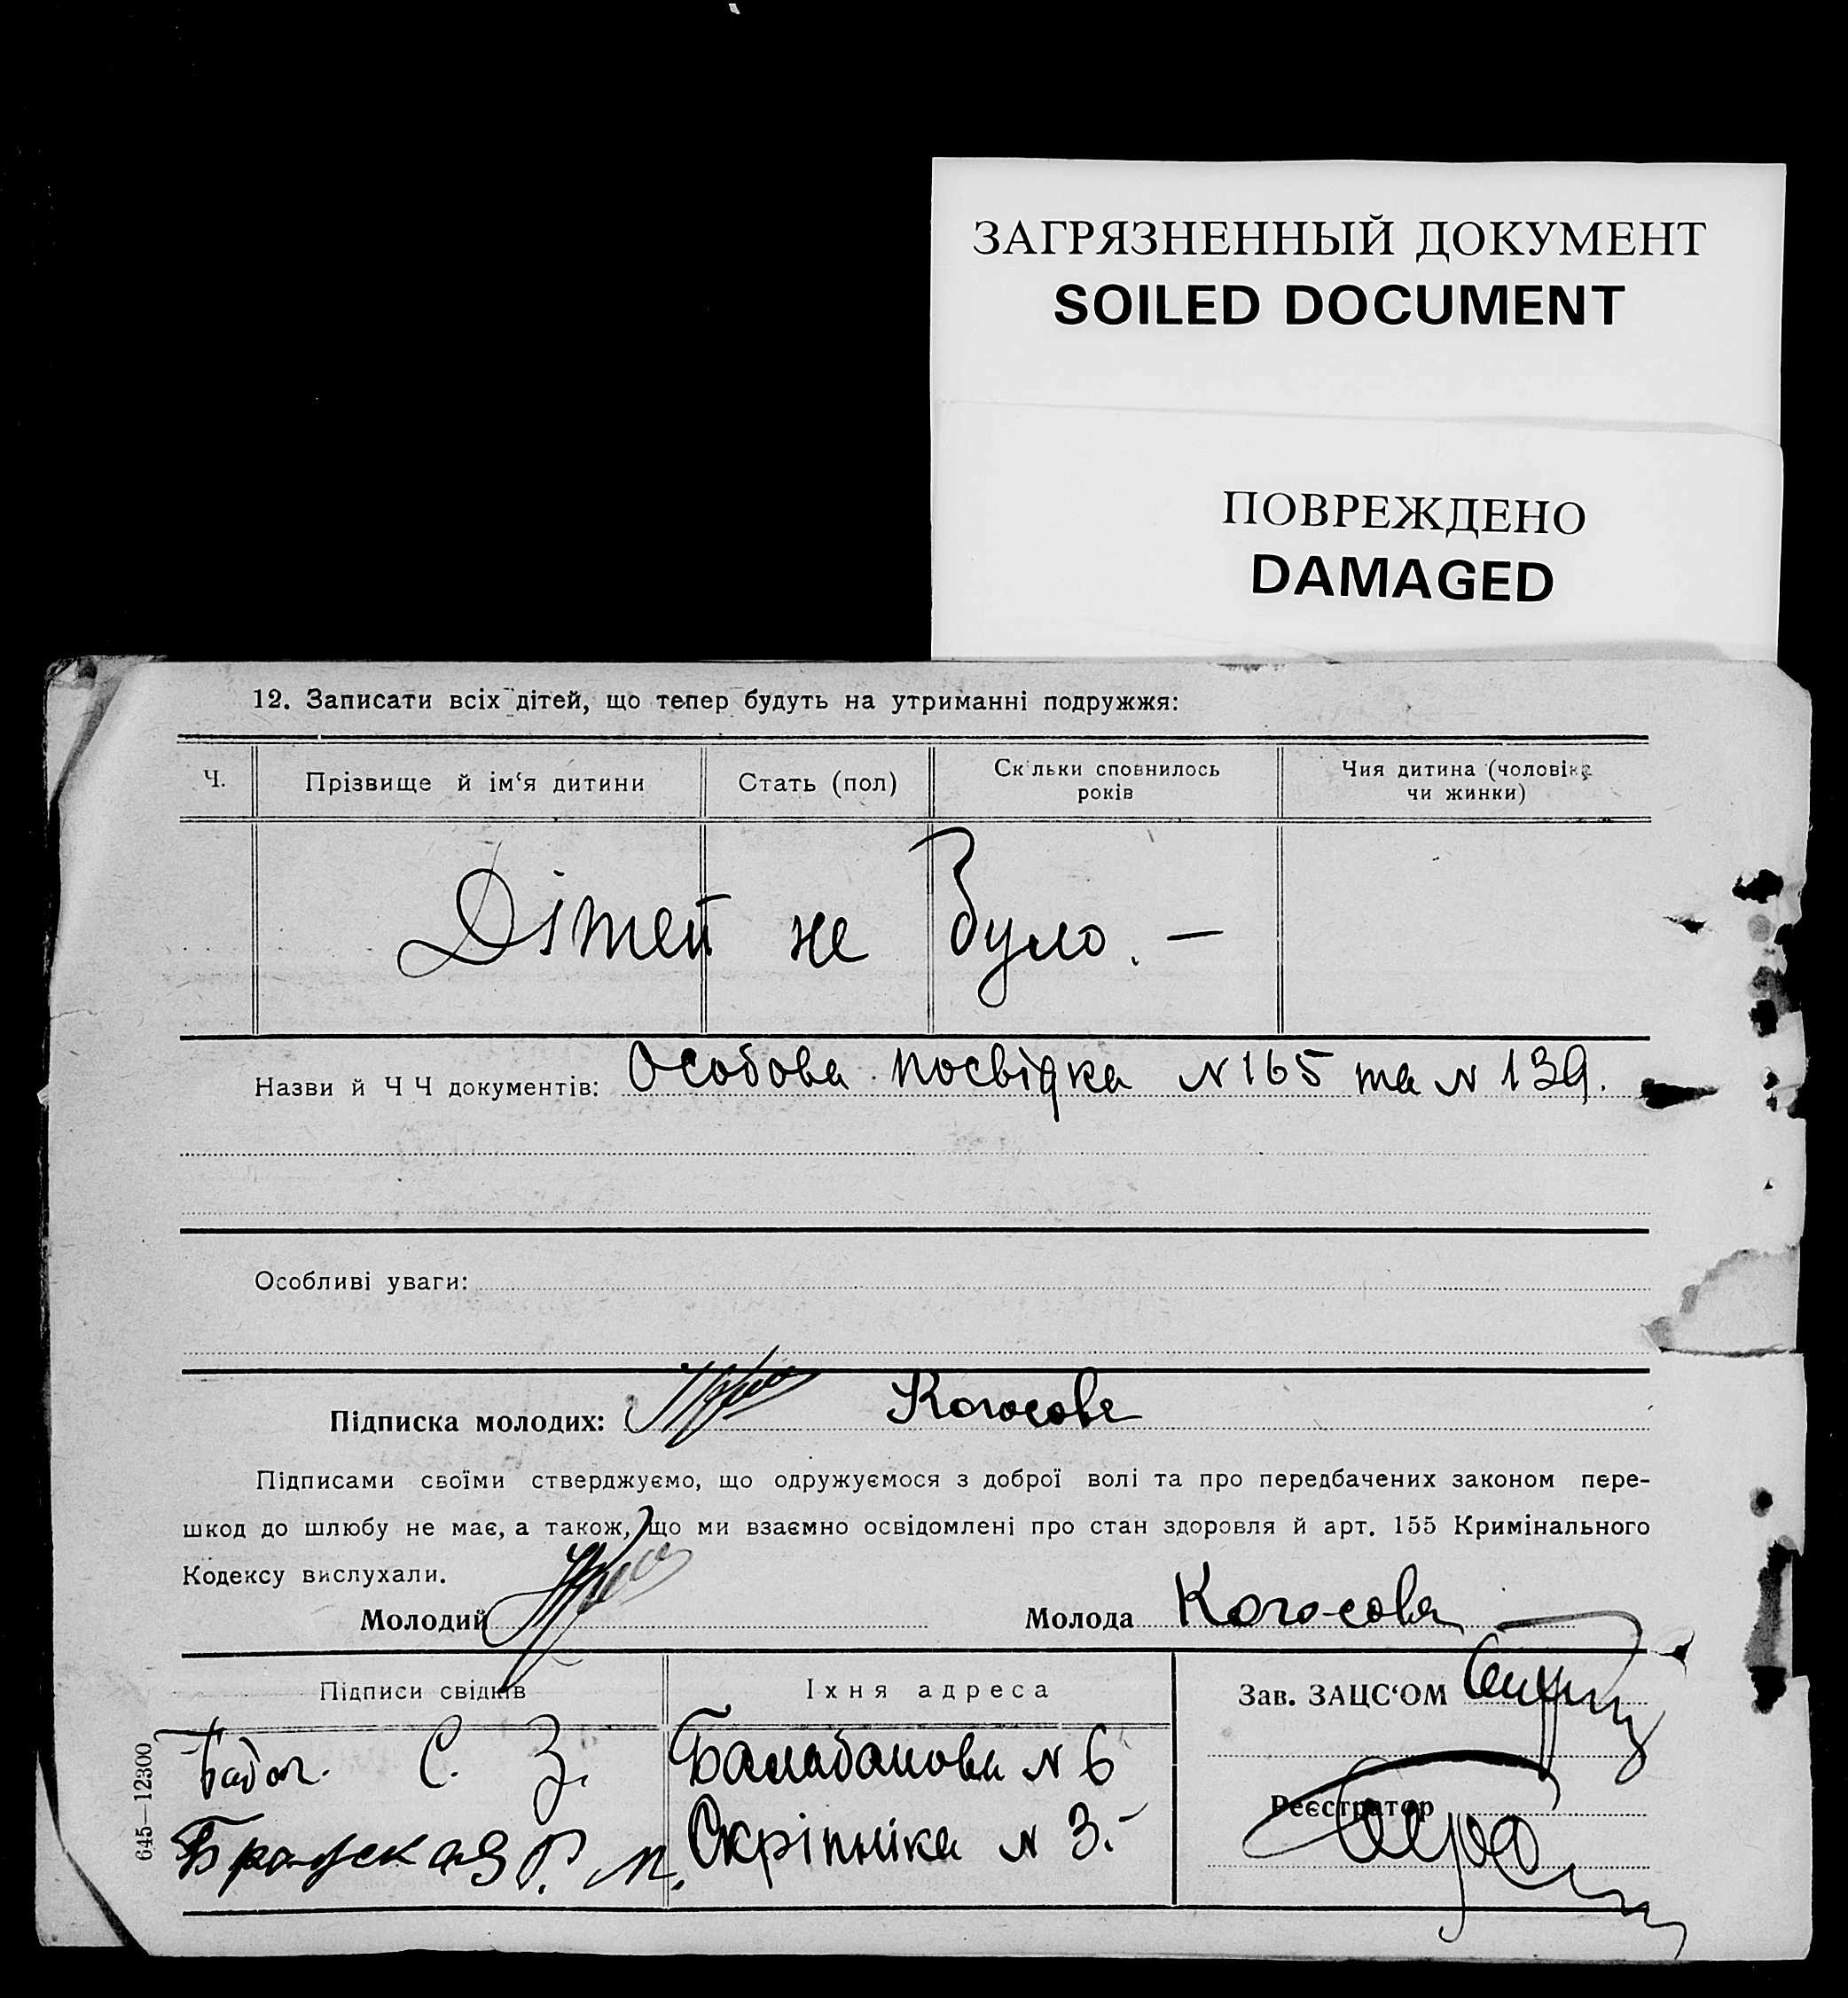 ЗАГРЯЗНЕННЫЙ ДОКУМЕНТ
SOILED DOCUMENT
ПОВРЕЖДЕНО
DAMAGED
12. Записати всіх дітей, що тепер будуть на утриманні подружжя:
Ч. Прізвище й ім‘я дитини Стать (пол) Скільки сповнилось років Чия дитина (чоловіка чи жинки)
Дітей не було. —
Назви й Ч Ч документів: Особова посвідка N 165 та N 139.
Особливі уваги:
Підписка молодих: Когосова
Підписами своїми стверджуємо, що одружуємося з доброї волі та про передбачених законом пере-
шкод до шлюбу не має, а також, що ми взаємно освідомлені про стан здоровля й арт. 155 Кримінального
Кодексу вислухали.
Молодий Молода Когосова
Підписи свідків Їхня адреса Зав. ЗАЦС‘ОМ
С. З. Балабанова N 6
Реєстратор
Р. М. Скріпніка N 3.-
645—12300